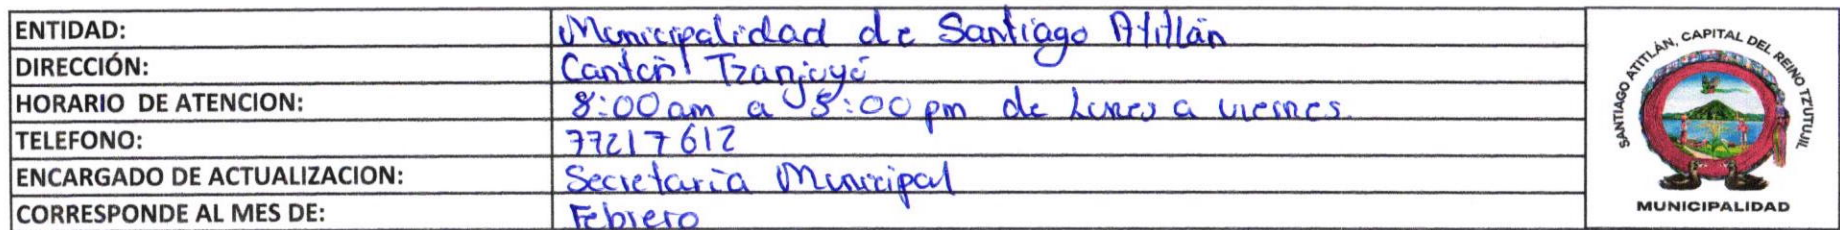 ENTIDAD: Municipalidad de Santiago Atitlán
DIRECCIÓN: Cantón Tzanjuyú
HORARIO DE ATENCION: 8:00 am a 5:00 pm de Lunes a viernes.
TELEFONO: 77217612
ENCARGADO DE ACTUALIZACION: Secretaría Municipal
CORRESPONDE AL MES DE: Febrero
SANTIAGO ATITLÁN, CAPITAL DEL REINO TZUTUJIL
MUNICIPALIDAD